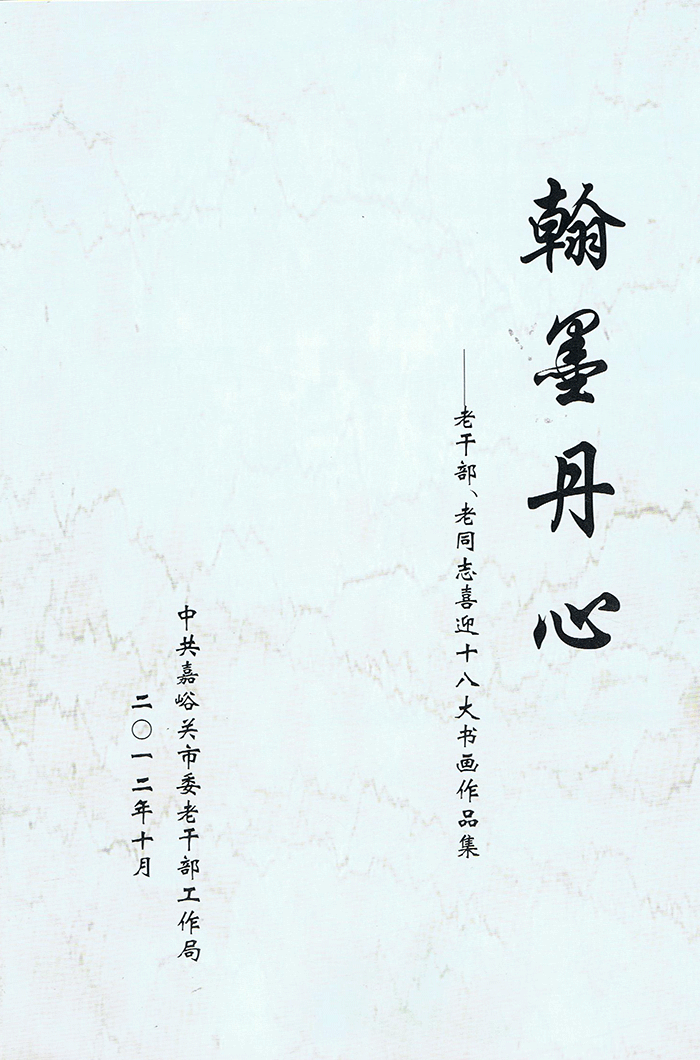 翰墨丹心
——老干部、老同志喜迎十八大书画作品集
中共嘉峪关市委老干部工作局
二〇一二年十月